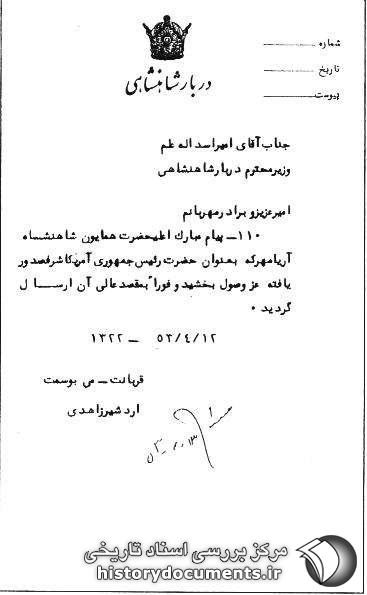 دربار شاهنشاهی
شماره
تاریخ
پیوست
جناب آقای امیر اسداله علم
وزیر محترم دربار شاهنشاهی
امیر عزیز و برادر مهربانم
۱۱۰ــ پیام مبارك اعلیحضرت همایون شاهنشاه
آریامهرکه بعنوان حضرت رئیس جمهوری آمریکا شرفصدور
یافته عز وصول بخشید و فوراً بمقصد عالی آن ارســال
گردید ۰
۵۳/۴/۱۲ ــ ۱۳۲۲
قربانت ــ می بوسمت
اردشیر زاهدی
مرکز بررسی اسناد تاریخی
historydocuments.ir